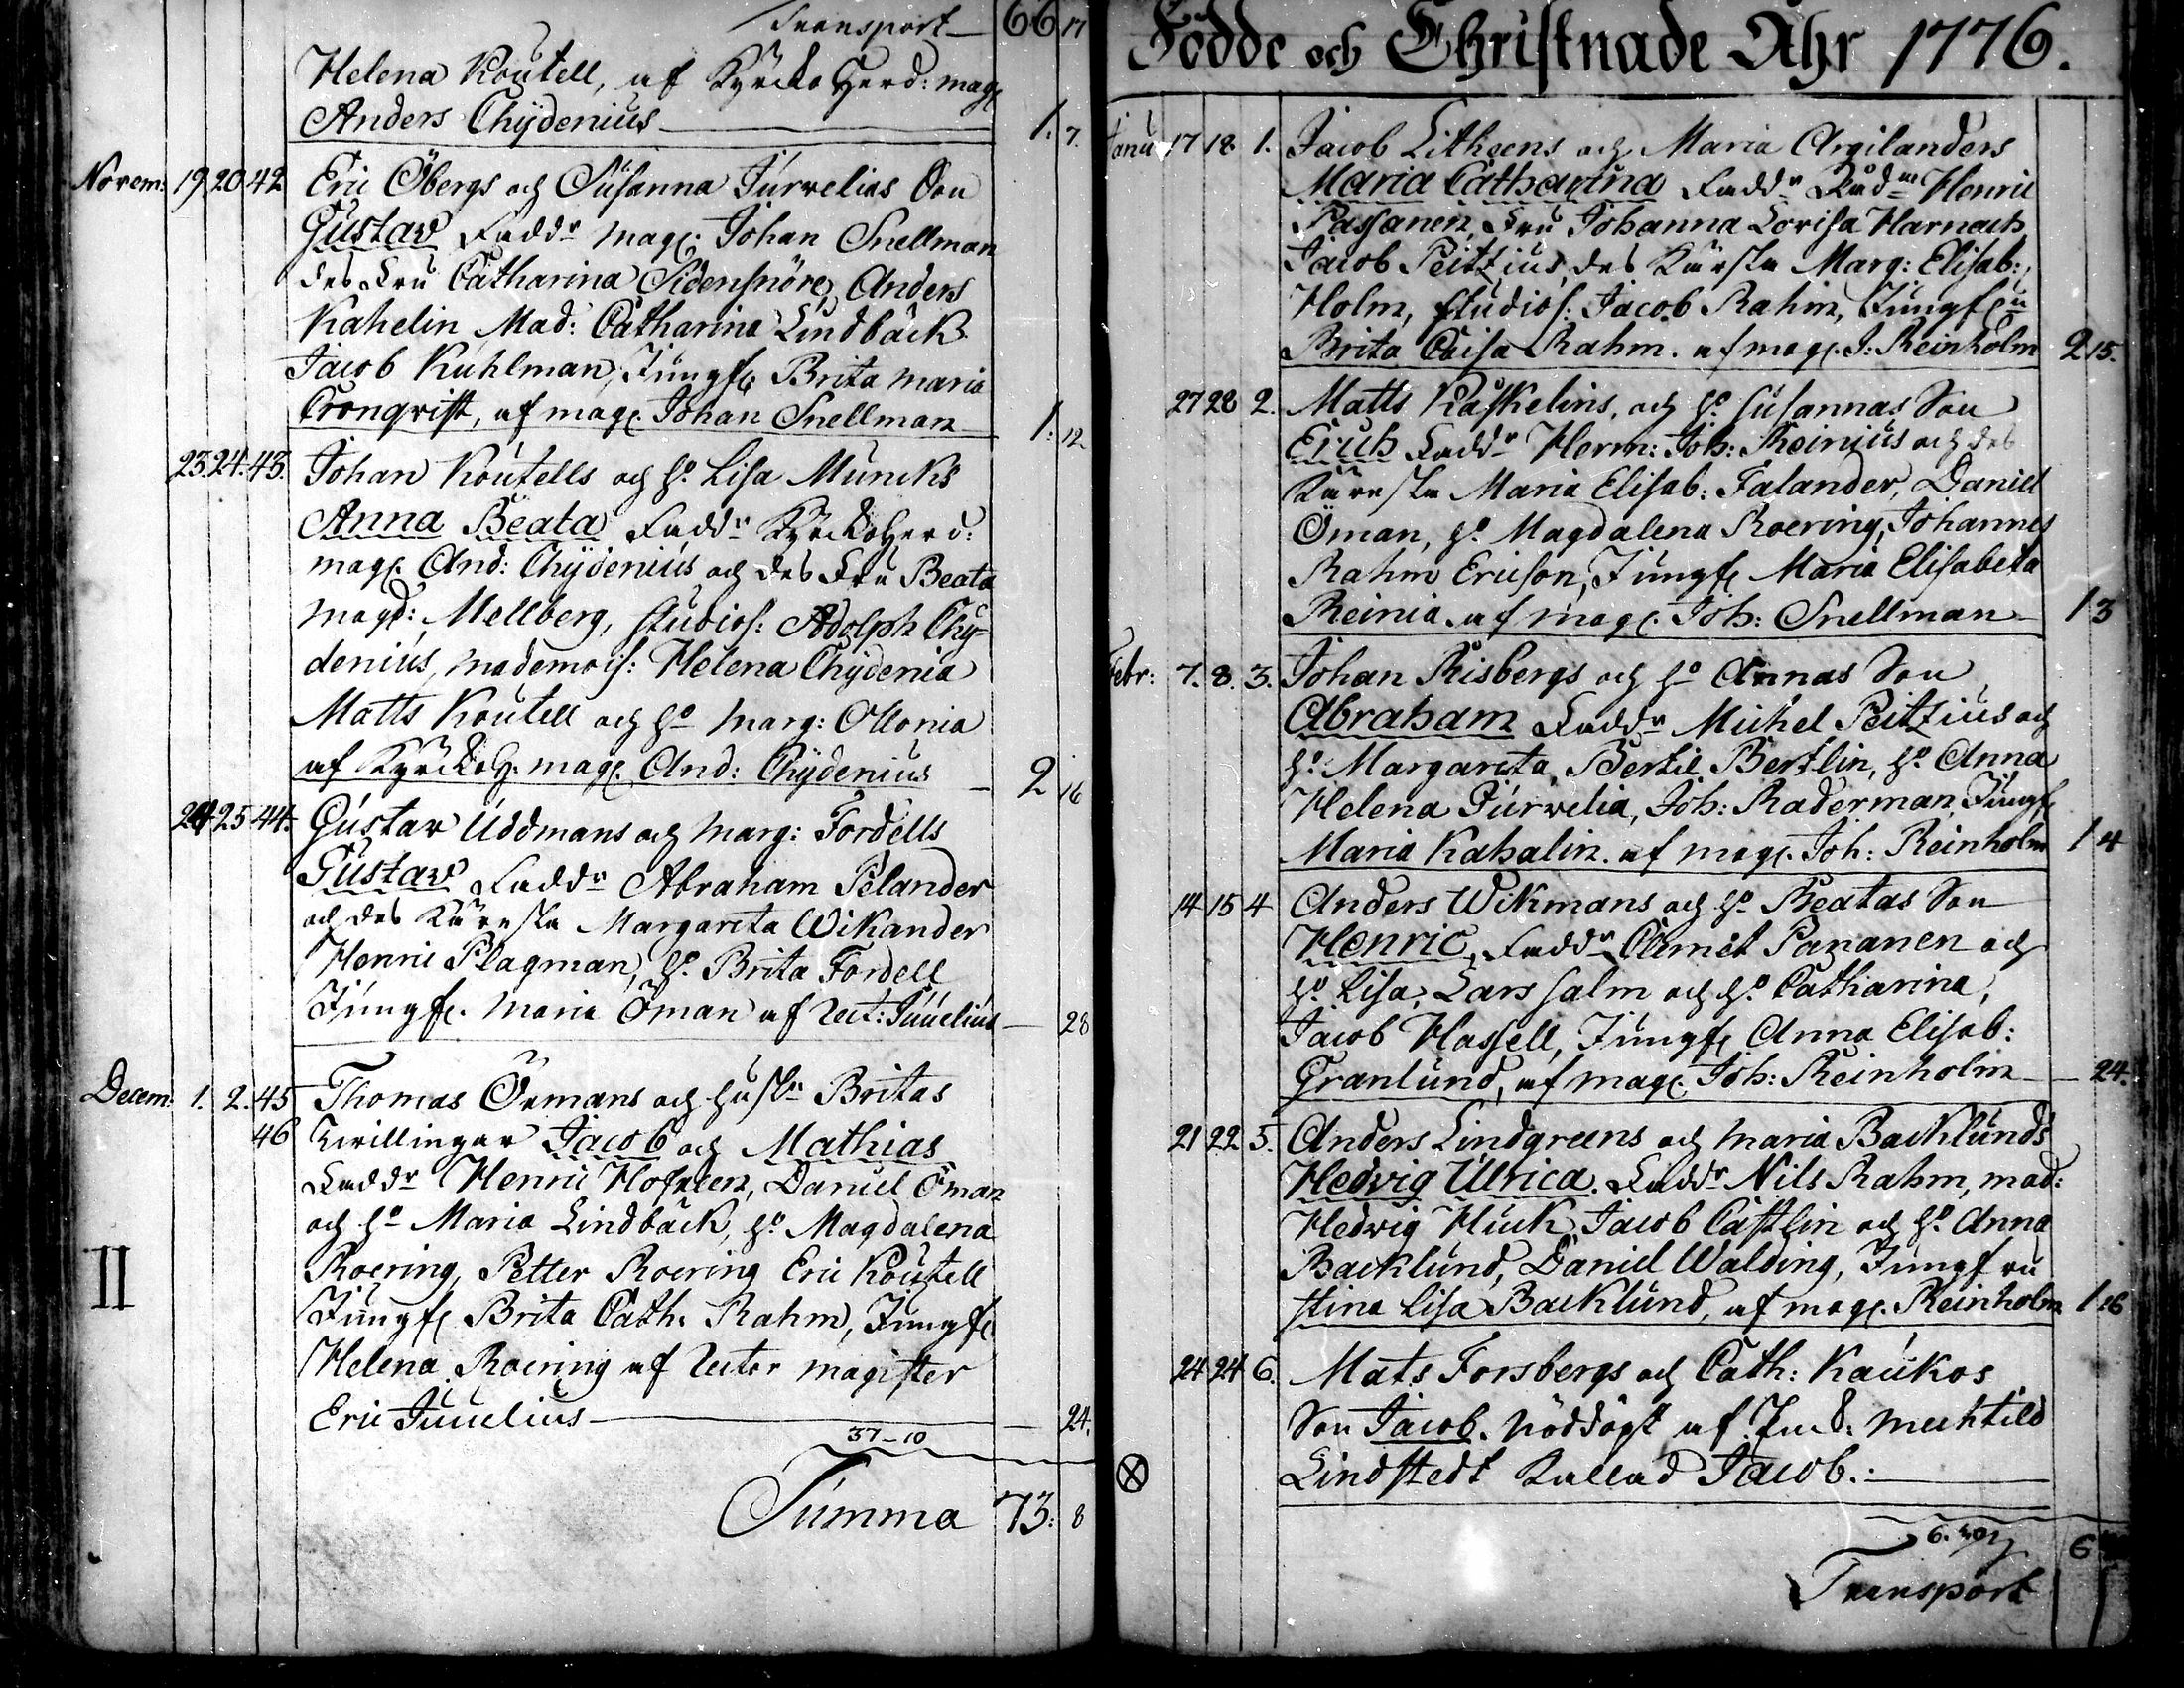 Transport 66 17
Helena Koutell, af Kyrcko Herd: mag:
Anders Chydenius 1. 7.
Novem: 19 20 42. Eric Öbergs och Susanna Jurvelias Son
Gustav Faddr mag: Johan Snellman
des Fru Catharina Sidensnöre, Anders
Kahelin Mad: Catharina Lindbäck
Jacob Kuhlman, Jungfr Brita Maria
Cronqvist, af mag: Johan Snellman 1. 12
23. 24. 43. Johan Koutells och h:o Lisa Muncks
Anna Beata Faddr KyrckoHerd:
mag: And: Chydenius och des Fru Beata
Magd: Mellberg, Studios: Adolph Chy-
denius, Mademois: Helena Chydenia
Matts Koutell och h:o Marg: Ollonia
af KyrckoH. mag: And: Chydenius 2 16
24 25 44. Gustav Uddmans och Marg: Fordells
Gustav Faddr Abraham Pelander
och des Käresta Margareta Wikander
Henric Plagman, h:o Brita Fordell
Jungfr. Maria Öman af Rect: Juuelius 28
Decem: 1. 2. 45 Thomas Örmans och hustr Britas
46 Tvillingar Jacob och Mathias
Faddr Henric Hofreen, Daniel Öman
och h:o Maria Lindbäck, h:o Magdalena
Roering, Petter Roering Eric Koutell
Jungfr Brita Cath: Rahm, Jungfr
Helena Roering af Rector magister
Eric Juuelius 24.
37-10
Summa 73: 8
II
Födde och Christnade Åhr 1776.
Janu 17 18. 1. Jacob Litheens och Maria Argilanders
Maria Catharina Faddr Rådm Henric
Passanen, Fru Johanna Lovisa Harnach
Jacob Peitzius, des Käresta Marg: Elisab:
Holm, Studios: Jacob Rahm, Jungfru
Brita Caisa Rahm. af mag: J: Reinholm 2 15.
27 28 2. Matts Kaskelins, och h:o Susannas Son
Erich Faddr Herm: Joh: Reinius och des
Käresta Maria Elisab: Falander, Daniel
Öman, h:o Magdalena Roering, Johannes
Rahm Ericson, Jungfr Maria Elisabeta
Reinia. af mag: Joh: Snellman 1 3
Febr: 7. 8. 3. Johan Risbergs och h:o Annas Son
Abraham Faddr Michel Peitzius och
h:o Margareta, Bertil Bertlin, h:o Anna
Helena Jurvelia, Joh: Raderman, Jungfr
Maria Kahalin. af mag: Joh: Reinholm 1 4
14 15 4 Anders Wikmans och h:o Beatas Son
Henric, Faddr Clemet Pananen och
h:o Lisa, Lars Salm och h:o Catharina,
Jacob Hassell, Jungfr Anna Elisab:
Granlund, af mag: Joh: Reinholm 24.
21 22 5. Anders Lindgreens och Maria Backlunds
Hedvig Ulrica. Faddr Nils Rahm, mad:
Hedvig Huck, Jacob Castlin och h:o Anna
Backlund, Daniel Walding, Jungfru
Stina Lisa Backlund, af mag: Reinholm 1 16
24 24 6. Mats Forsbergs och Cath: Kaukos
Son Jacob. Nöddögt af Mechtild
Lindstedt Kallad Jacob.
6.
Transport 6